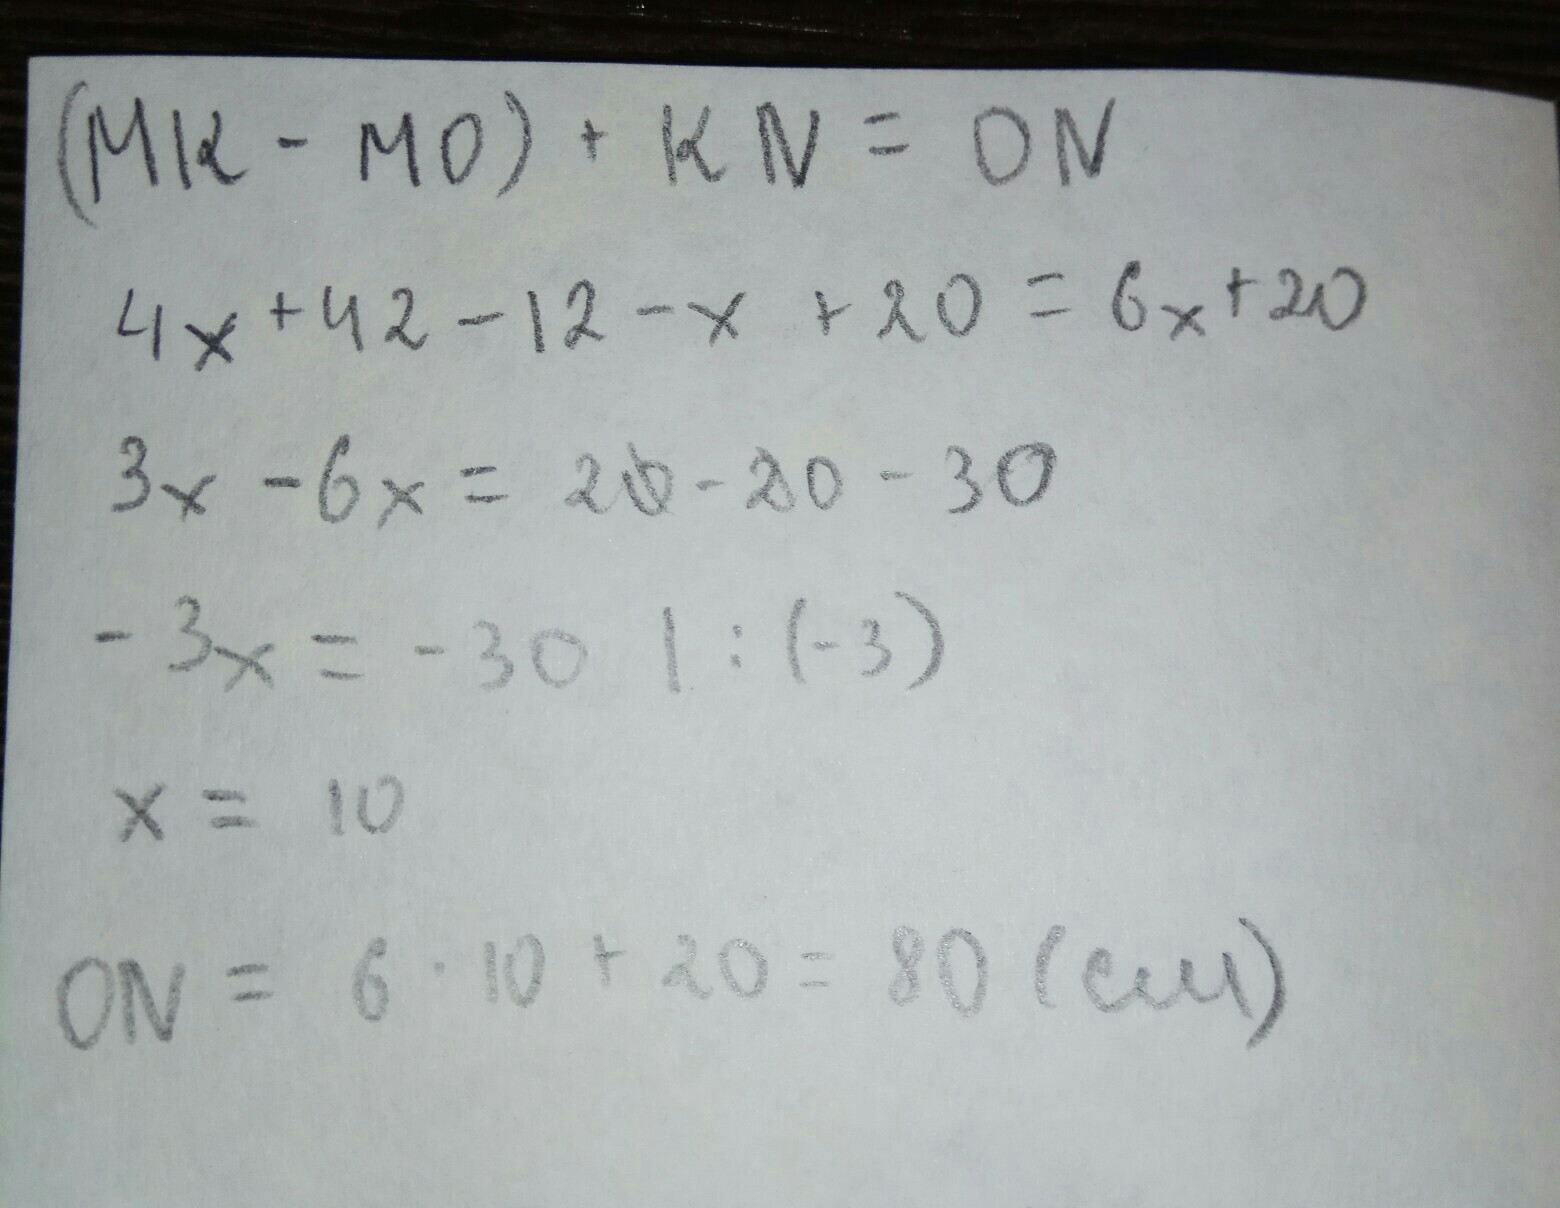 (MK - MO) + KN = ON
4x + 42 - 12 - x + 20 = 6x + 20
3x - 6x = 20 - 20 - 30
- 3x = - 30 | : (-3)
x = 10
ON = 6 · 10 + 20 = 80 (см)